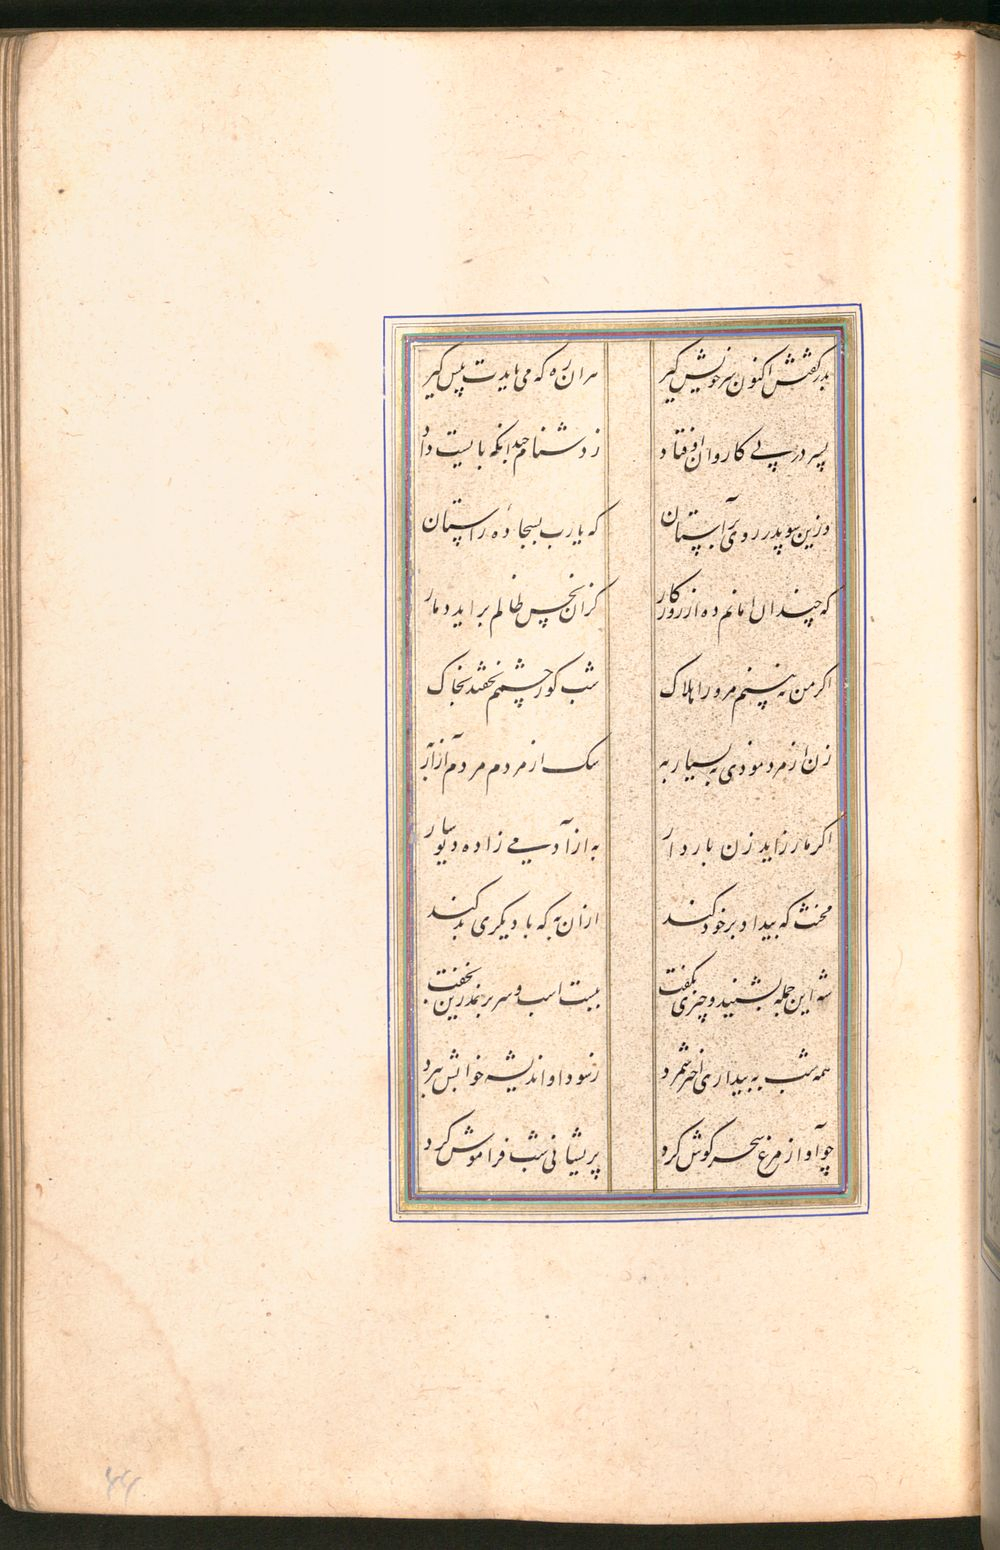 پدر گفتش اکنون سر خویش گیر هر آن ره که می بایدت پیش گیر
پسر در پی کاروان افتاد ز دشنام چندانکه بایست داد
وزین سو پدر روی بر آستان که یارب بسجاده راستان
که چندان امانم ده از روزکار کزان نحس ظالم براید دمار
اکر من نه بینم مرورا هلاک شب کور چشمم نخفتد بخاک
زن از مرد موذی به بسیار به سک از مردم مردم آزار به
اکر مار زاید زن باردار به از آدمی زاده دیوسار
مخنث که بیداد بر خود کند ازان به که با دیکری بد کند
شه این جمله بشنید و چیزی نکفت ببست اسب و سر بر نمدزین بخفت
همه شب به بیداری اختر شمرد ز سودا و اندیشه خوابش نبرد
چو آواز مرغ سحر کوش کرد پریشانی شب فراموش کرد